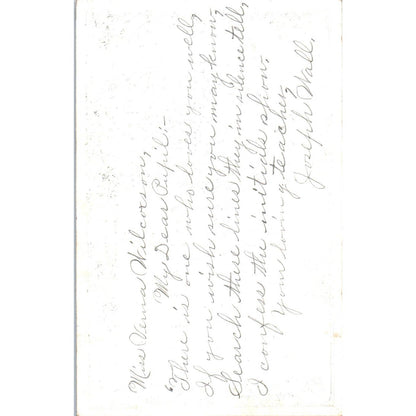 Miss Verna Wilcoxson,
My Dear Pupil:-
"There is one who loves you well,
If you wish sure you may know,
Search these lines they in silence tell,
I confess the initials show.
Your loving teacher,
Joseph Wall.